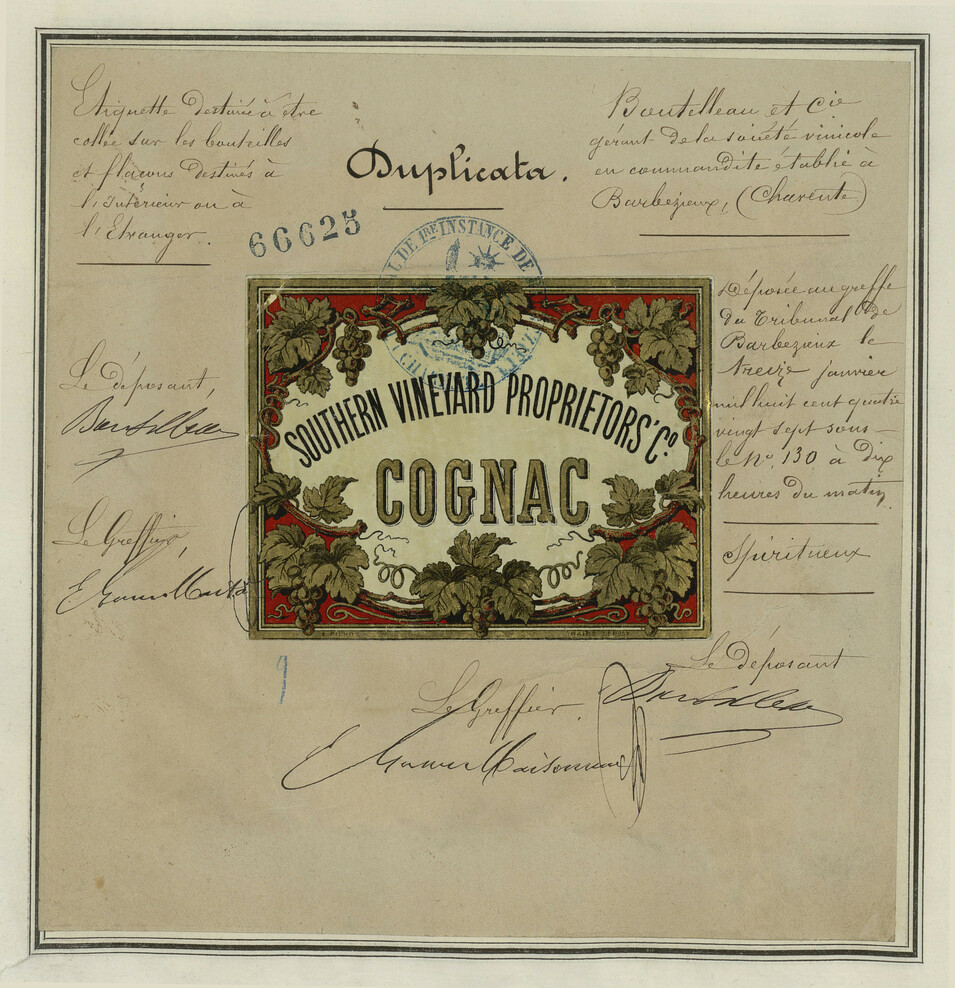 Etiquette destinée à être
collée sur les bouteilles
et flacons destinés à
l'Intérieur ou à
l'Etranger.
Duplicata.
Boutelleau et Cie
gérant de la société vinicole
en commandite établie à
Barbezieux, (Charente)
66625
AL DE 1RE INSTANCE DE
SOUTHERN VINEYARD PROPRIETORS' Co
COGNAC
Déposée au greffe
du Tribunal de
Barbezieux le
treize janvier
mil huit cent quatre
vingt sept sous
le No. 130 à dix
heures du matin
Spiritueux
Le déposant,
Boutelleau
Le Greffier,
Le déposant
Boutelleau
Le Greffier.